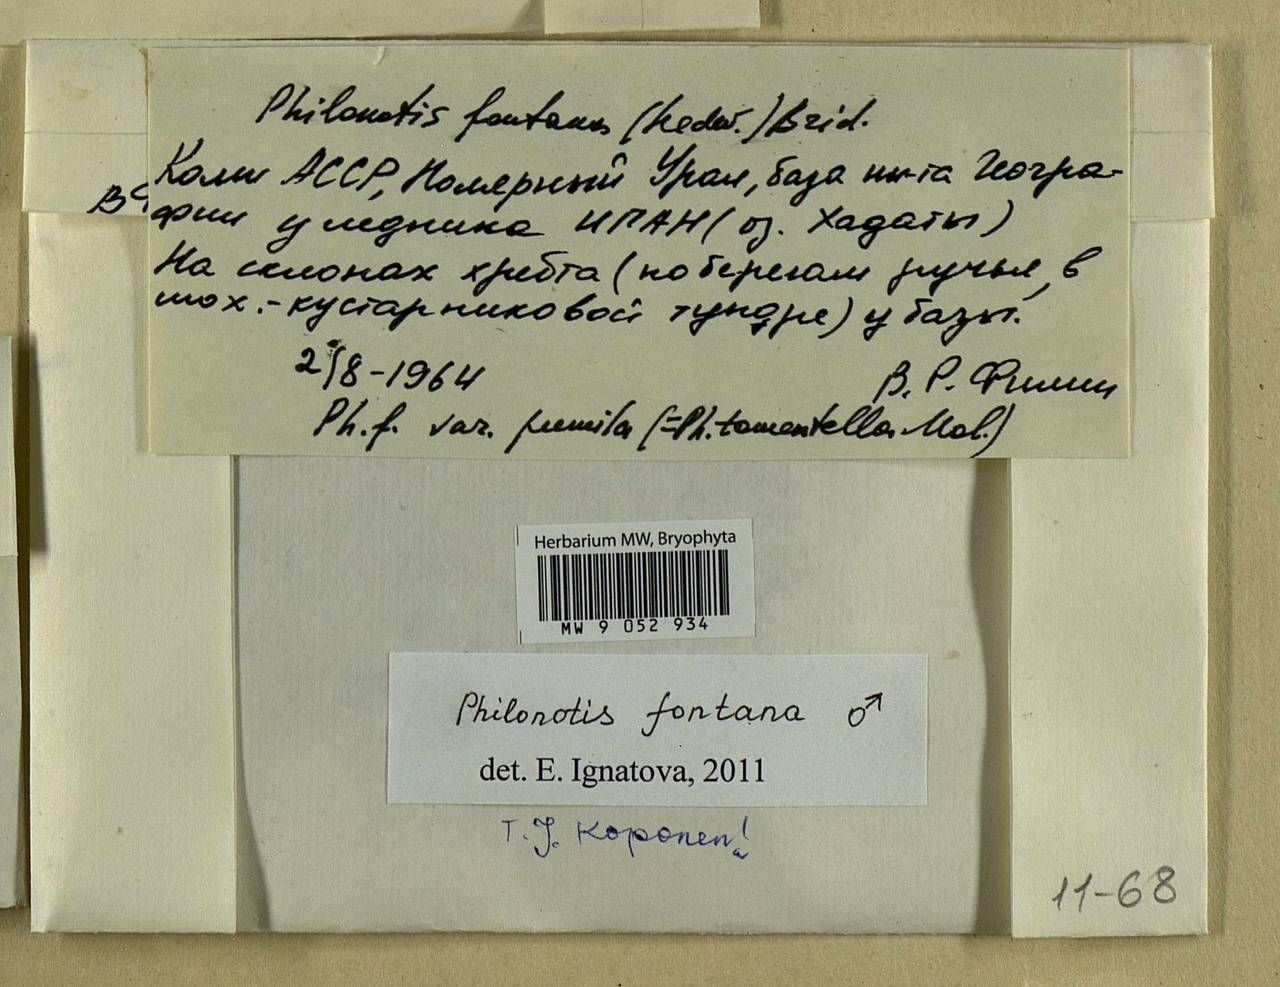 Philonotis fontana (Hedw.) Brid.
Коми АССР, Полярный Урал, база ин-та Геогра-
фии у ледника ИГАН (оз. Хадаты)
На склонах хребта (по берегам ручья, в
мох.-кустарниковой тундре) у базы.
2/8-1964 В. Р. Филин
Ph. f. var. pumila (=Ph. tomentella Mol.)
Herbarium MW, Bryophyta
MW 9 052 934
Philonotis fontana ♂
det. E. Ignatova, 2011
T. J. Koponen!
11-68